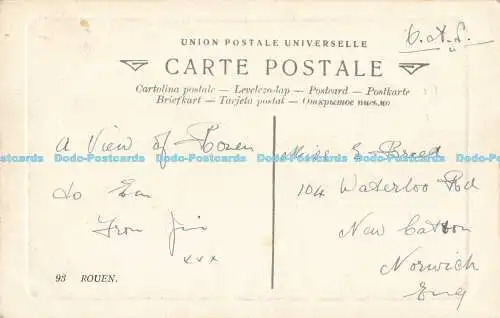 UNION POSTALE UNIVERSELLE
CARTE POSTALE
Cartolina postale — Levelezo-lap — Postcard — Postkarte
Briefkart — Tarjeta postal — Открытое письмо
A View of Rouen
to
From Jim
xxx
Miss E.
104 Waterloo Rd
New Catton
Norwich
Eng
93 ROUEN.
Dodo-Postcards Dodo-Postcards Dodo-Postcards Dodo-Postcards